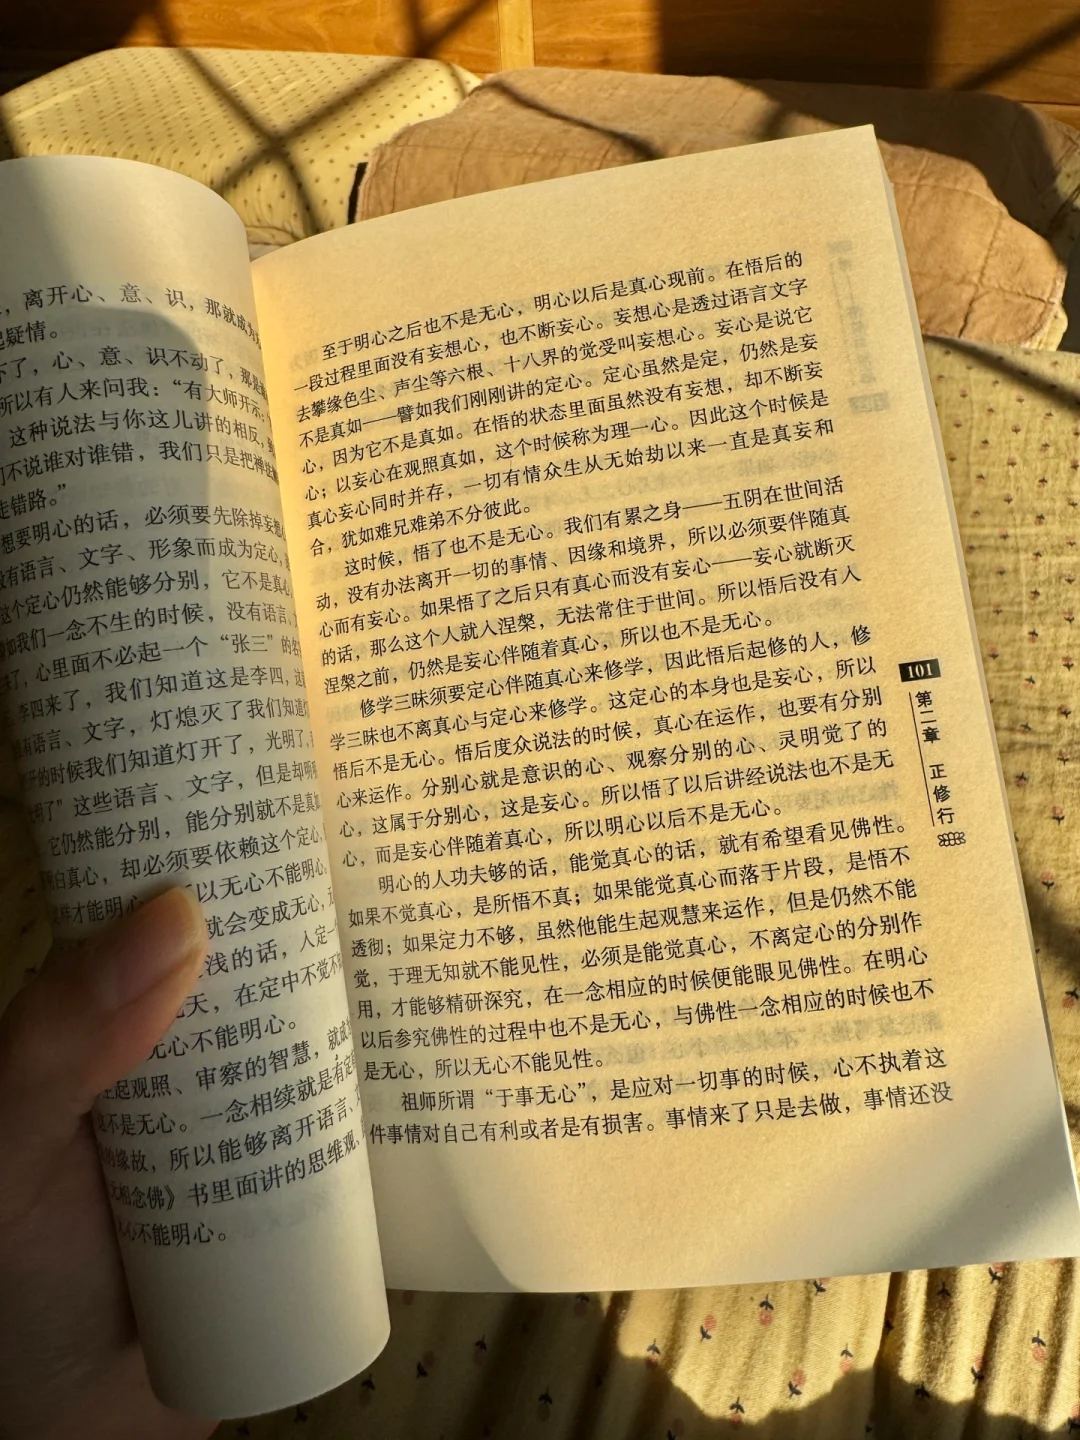 ，离开心、意、识，那就成为
起疑情。
不了，心、意、识不动了，那是
所以有人来问我：“有大师开示：
这种说法与你这儿讲的相反，
们不说谁对谁错，我们只是把禅
走错路。”
想要明心的话，必须要先除掉妄想
没有语言、文字、形象而成为定心，
这个定心仍然能够分别，它不是真心
如我们一念不生的时候，没有语言、
了，心里面不必起一个“张三”的名
李四来了，我们知道这是李四，
有语言、文字，灯熄灭了我们知道
开的时候我们知道灯开了，光明了，
明了”这些语言、文字，但是却明
它仍然能分别，能分别就不是真
明白真心，却必须要依赖这个定心
才能明心 以无心不能明心。
就会变成无心，
浅的话，人定一
天，在定中不觉不
无心不能明心。
起观照、审察的智慧，就成
不是无心。一念相续就是有定
的缘故，所以能够离开语言、
无相念佛》书里面讲的思维观、
心不能明心。
至于明心之后也不是无心，明心以后是真心现前。在悟后的
一段过程里面没有妄想心，也不断妄心。妄想心是透过语言文字
去攀缘色尘、声尘等六根、十八界的觉受叫妄想心。妄心是说它
不是真如——譬如我们刚刚讲的定心。定心虽然是定，仍然是妄
心，因为它不是真如。在悟的状态里面虽然没有妄想，却不断妄
心；以妄心在观照真如，这个时候称为理一心。因此这个时候是
真心妄心同时并存，一切有情众生从无始劫以来一直是真妄和
合，犹如难兄难弟不分彼此。
这时候，悟了也不是无心。我们有累之身——五阴在世间活
动，没有办法离开一切的事情、因缘和境界，所以必须要伴随真
心而有妄心。如果悟了之后只有真心而没有妄心——妄心就断灭
的话，那么这个人就入涅槃，无法常住于世间。所以悟后没有人
涅槃之前，仍然是妄心伴随着真心，所以也不是无心。
修学三昧须要定心伴随真心来修学，因此悟后起修的人，修
学三昧也不离真心与定心来修学。这定心的本身也是妄心，所以
悟后不是无心。悟后度众说法的时候，真心在运作，也要有分别
心来运作。分别心就是意识的心、观察分别的心、灵明觉了的
心，这属于分别心，这是妄心。所以悟了以后讲经说法也不是无
心，而是妄心伴随着真心，所以明心以后不是无心。
明心的人功夫够的话，能觉真心的话，就有希望看见佛性。
如果不觉真心，是所悟不真；如果能觉真心而落于片段，是悟不
透彻；如果定力不够，虽然他能生起观慧来运作，但是仍然不能
觉，于理无知就不能见性，必须是能觉真心，不离定心的分别作
用，才能够精研深究，在一念相应的时候便能眼见佛性。在明心
以后参究佛性的过程中也不是无心，与佛性一念相应的时候也不
是无心，所以无心不能见性。
祖师所谓“于事无心”，是应对一切事的时候，心不执着这
件事情对自己有利或者是有损害。事情来了只是去做，事情还没
101
第二章 正修行